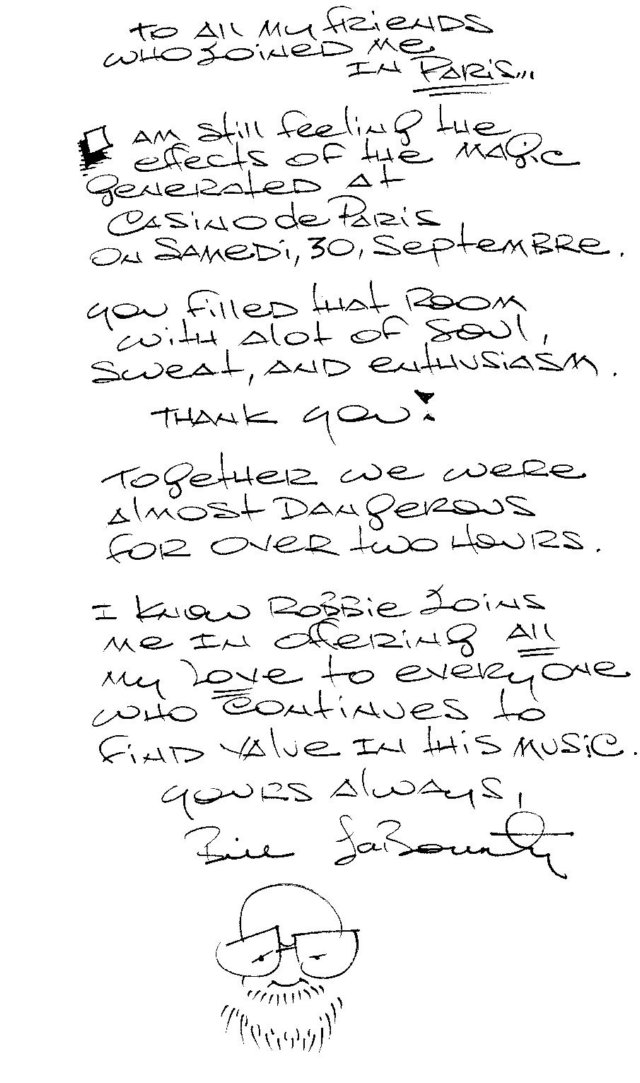 TO All MY fRiENDS
WHO JOiNED Me
IN PARiS...
I AM still feeling the
effects of the MAgic
generated At
CASINO de PARIS
ON SAMEDi, 30, SeptemBRe.
you filled that ROOM
with alot of Soul,
Sweat, AND enthusiasm.
THANK you!
Together we were
almost DANgeROUS
FOR over two HOURS.
I know ROBBie Joins
Me IN offering All
My Love to everyone
WHO CONtiNUES to
find value IN this Music.
yours Always,
Bill LaBounty